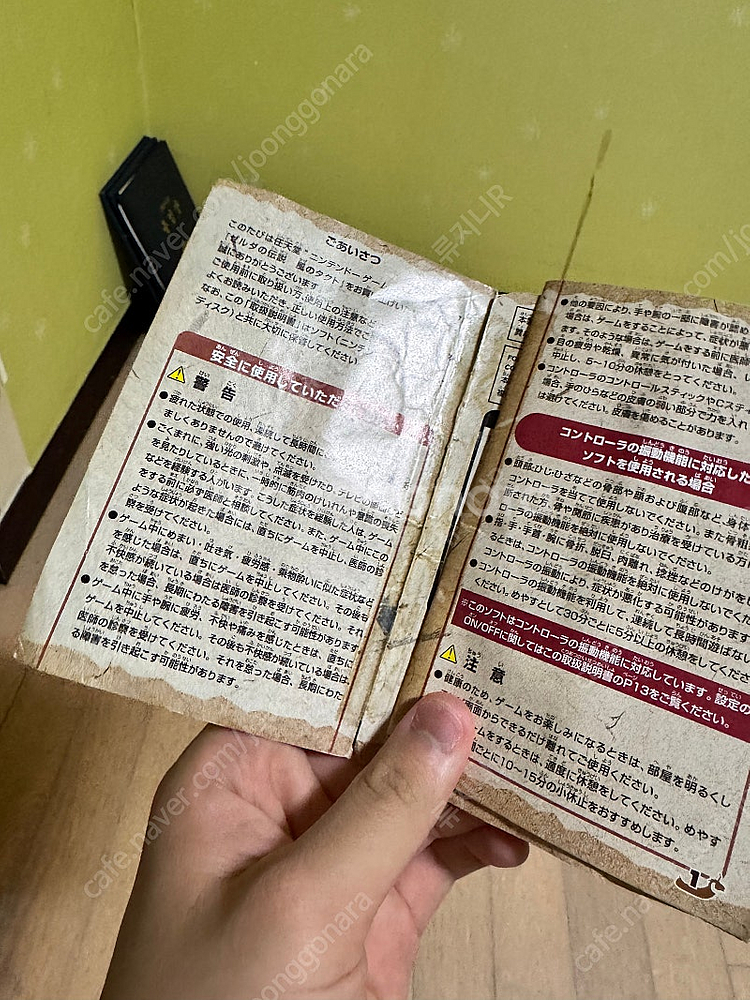 ごあいさつ
このたびは任天堂 ニンテンドーゲーム
「ゼルダの伝説 風のタクト」をお買い上げい
誠にありがとうございます。
ご使用前に取り扱い方、使用上の注意など
よくお読みいただき、正しい使用方法でご
なお、この「取扱説明書」はソフト(ニンテ
ディスク)と共に大切に保管してください
安全に使用していただ
警告
●疲れた状態での使用、連続して長時間に
ましくありませんので避けてください。
●ごくまれに、強い光の刺激や、点滅を受けたり、テレビの画
を見たりしているときに、一時的に筋肉のけいれんや意識の喪失
などを経験する人がいます。こうした症状を経験した人は、ゲーム
をする前に必ず医師と相談してください。また、ゲーム中にこの
ような症状が起きた場合には、直ちにゲームを中止し、医師の診
察を受けてください。
●ゲーム中にめまい・吐き気・疲労感・乗物酔いに似た症状など
を感じた場合は、直ちにゲームを中止してください。その後も
不快感が続いている場合は医師の診察を受けてください。それ
を怠った場合、長期にわたる障害を引き起こす可能性があります。
●ゲーム中に手や腕に疲労、不快や痛みを感じたときは、直ちに
ゲームを中止してください。その後も不快感が続いている場合は、
医師の診察を受けてください。それを怠った場合、長期にわた
る障害を引き起こす可能性があります。
●他の要因により、手や腕の一部に障害が認め
場合は、ゲームをすることによって、症状が悪
ます。そのような場合は、ゲームをする前に医師
●目の疲労や乾燥、異常に気が付いた場合、
中止し、5~10分の休憩をとってください。
●コントローラのコントロールスティックやCステ
場合、手のひらなどの皮膚の弱い部分で力を入れ
は避けてください。皮膚を傷めることがあります。
コントローラの振動機能に対応した
ソフトを使用される場合
●頭部・ひじ・ひざなどの骨部や顔および腹部など、身体
コントローラを当てて使用しないでください。また骨粗
断された方、骨や関節に疾患があり治療を受けている方
ローラの振動機能を絶対に使用しないでください。
●指・手・手首・腕に骨折、脱臼、肉離れ、捻挫などのけがを
るときは、コントローラの振動機能を絶対に使用しないでく
コントローラの振動により、症状が悪化する可能性があります
●コントローラの振動機能を利用して、連続して長時間遊ばな
ください。めやすとして30分ごとに5分以上の休憩をしてくださ
※このソフトはコントローラの振動機能に対応しています。設定の
ON/OFFに関してはこの取扱説明書のP13をご覧ください。
注意
●健康のため、ゲームをお楽しみになるときは、部屋を明るくし
画面からできるだけ離れてご使用ください。
ゲームをするときは、適度に休憩をしてください。めやす
間ごとに10~15分の小休止をおすすめします。
1
cafe.naver.com/joonggonara
뮤지니JR